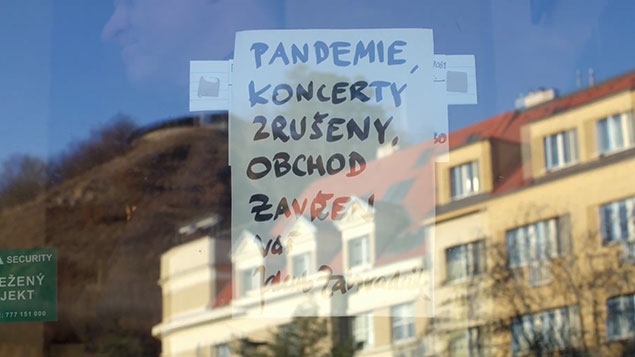 PANDEMIE,
KONCERTY
ZRUŠENY,
OBCHOD
ZAVŘEN
VÁŠ
SECURITY
EŽENÝ
JEKT
777 151 000